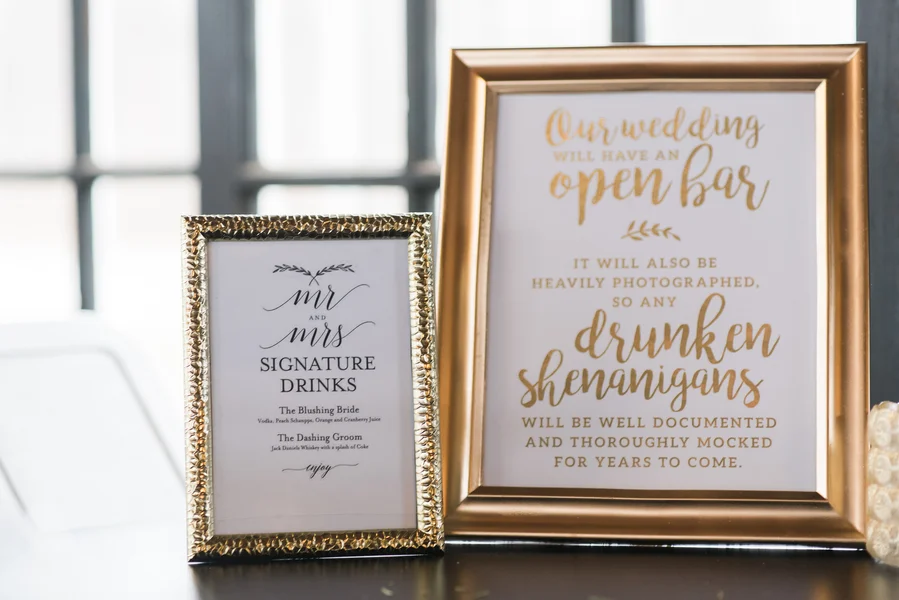 mr
AND
mrs
SIGNATURE
DRINKS
The Blushing Bride
Vodka, Peach Schnapps, Orange and Cranberry Juice
The Dashing Groom
Jack Daniels Whiskey with a splash of Coke
enjoy
Our wedding
WILL HAVE AN
open bar
IT WILL ALSO BE
HEAVILY PHOTOGRAPHED,
SO ANY
drunken
shenanigans
WILL BE WELL DOCUMENTED
AND THOROUGHLY MOCKED
FOR YEARS TO COME.